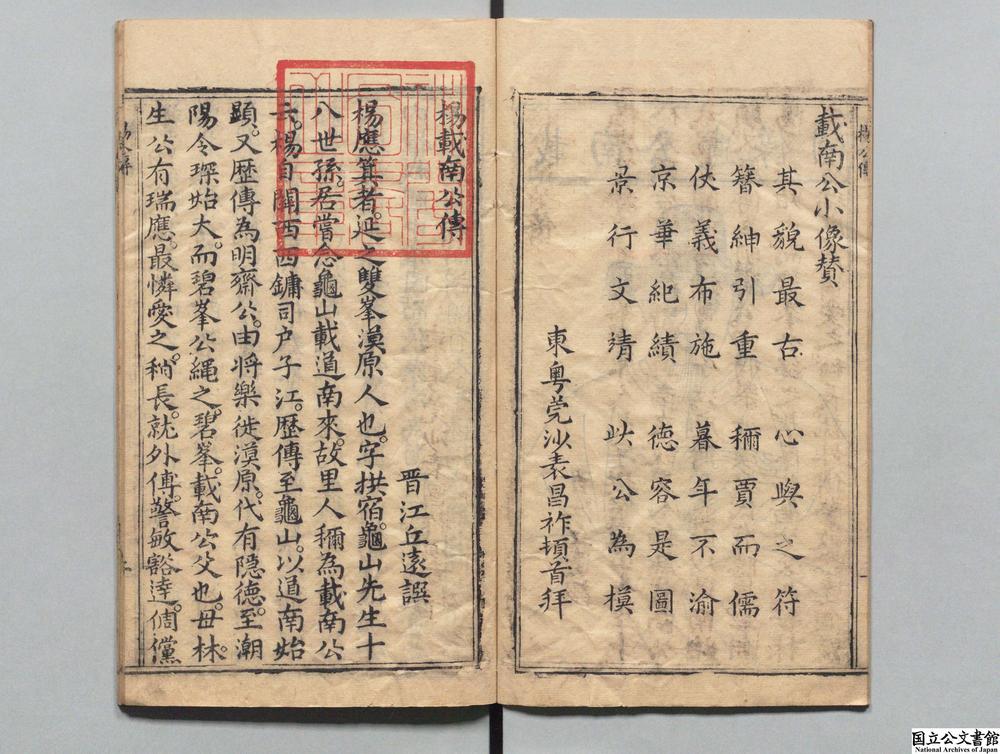 載南公小像贊
其貌最古 心與之符
簪紳引重 稱賈而儒
俠義布施 暮年不渝
京華紀績 德容是圖
景行文靖 此公為模
東粵莞沙袁昌祚頓首拜
楊載南公傳
晋江丘遠譔
楊應箕者。延之雙峯漠原人也。字拱宿。龜山先生十
八世孫。居嘗念龜山載道南來。故里人稱為載南公
云。楊自關西西鏞司户子江。歷傳至龜山。以道南始
顕。又歷傳為明齋公。由將樂徙漠原。代有隠德。至潮
陽令琛始大。而碧峯公繩之。碧峯。載南公父也。母林。
生公有瑞應。最憐愛之。稍長。就外傅。警敏豁達。倜儻
国立公文書館
National Archives of Japan